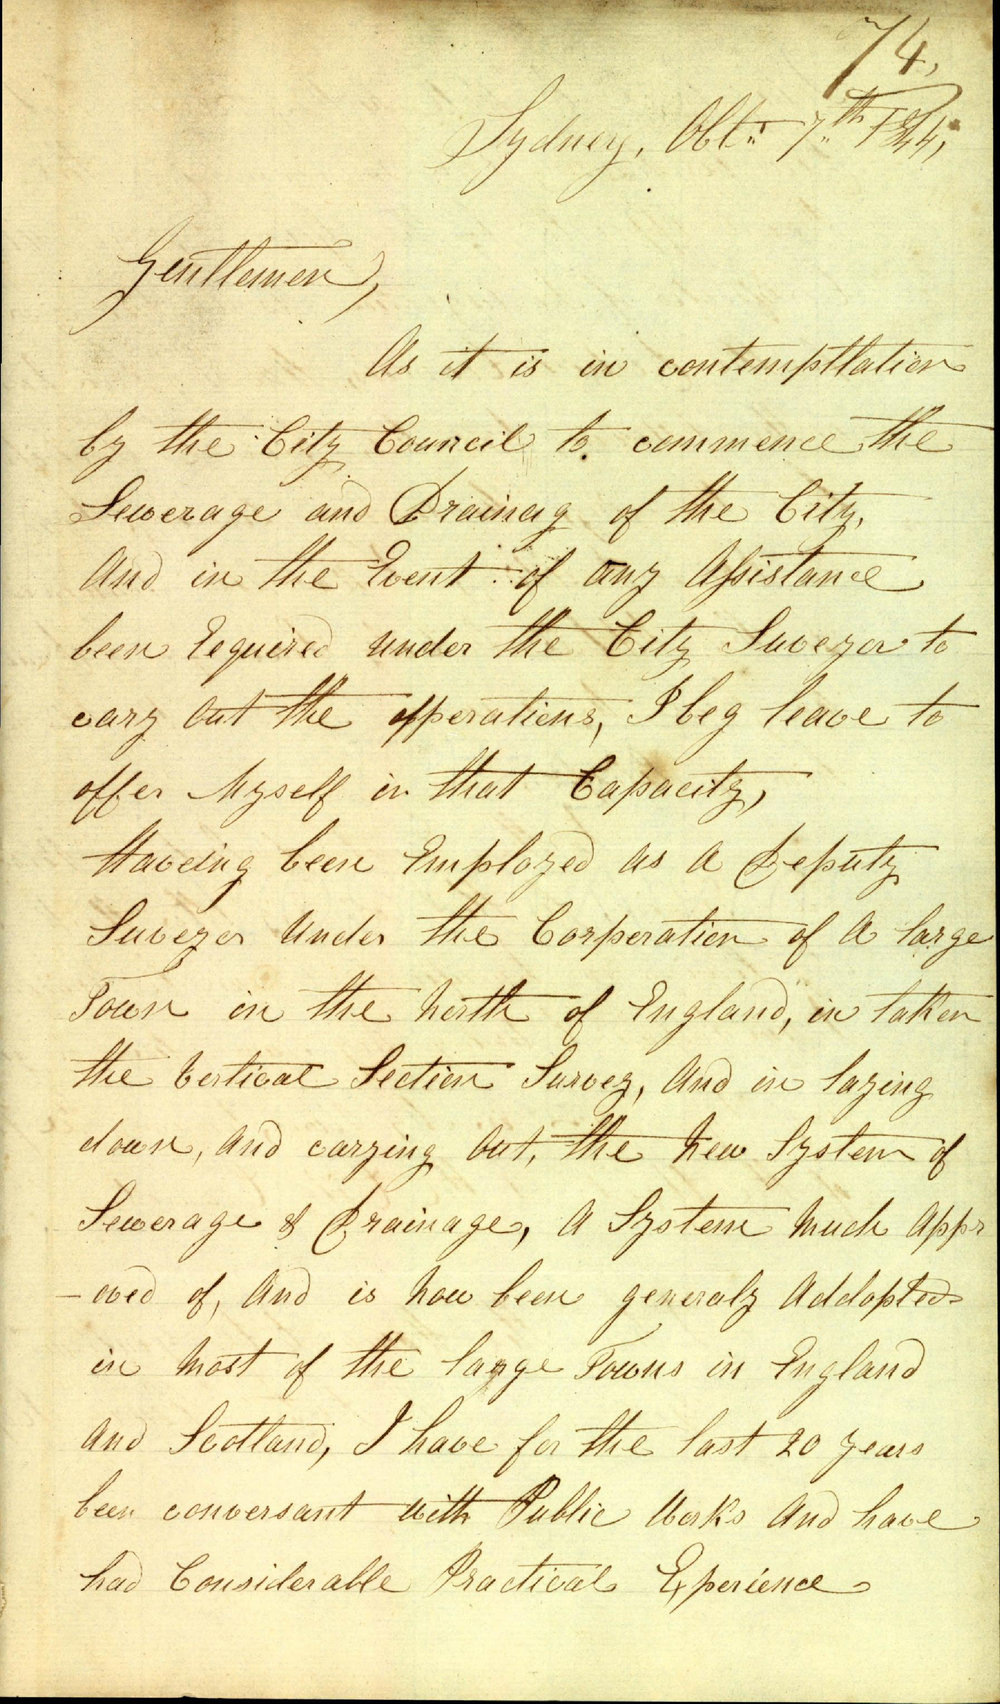 74,
Sydney, Obtr 7th 1844,
Gentlemen,
As it is in contempttation
by the City Council to commence the
Sewerage and Drainag of the City,
And in the Event of any Assistance
been Required under the City Suveyor to
cary Out the opperations, I beg leave to
offer Myself in that Capacity,
Haveing been Employed as A Deputy
Suveyor Under the Corporation of A large
Town in the North of England, in taken
the Vertical Section Survey, And in laying
down, And carrying Out, the New System of
Sewerage & Drainage, A System Much Appr
-oved of, And is Now been generaly Addopted
in Most of the large Towns in England
And Scotland, I have for the last 20 years
been conversant with Public Works And have
had Considerable Practical Experience